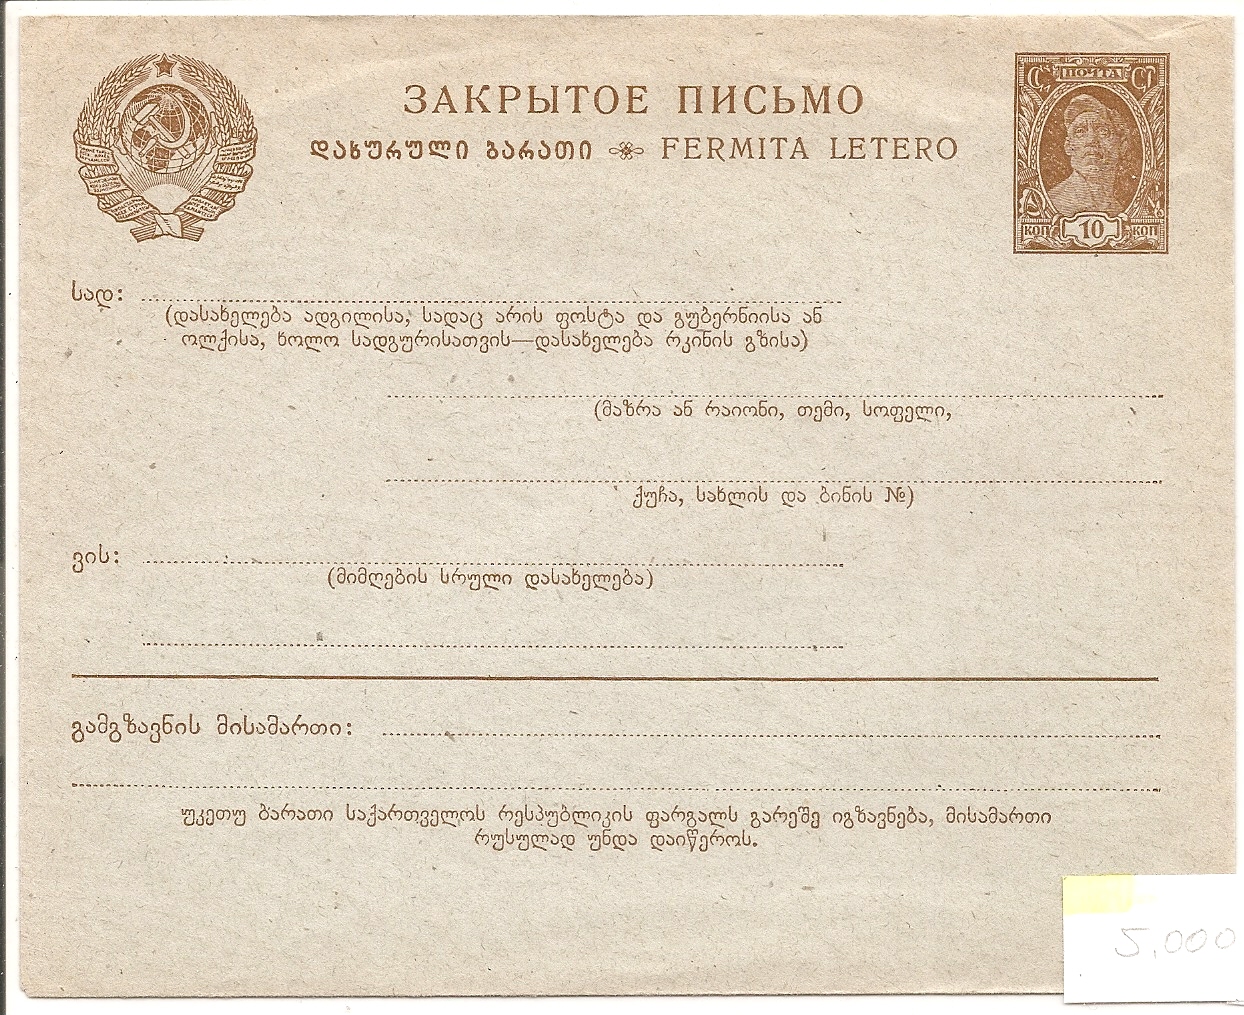 ЗАКРЫТОЕ ПИСЬМО
დახურული ბარათი FERMITA LETERO
ПОЧТА
КОП 10 КОП
სად:
(დასახელება ადგილისა, სადაც არის ფოსტა და გუბერნიისა ან
ოლქისა, ხოლო სადგურისათვის—დასახელება რკინის გზისა)
(მაზრა ან რაიონი, თემი, სოფელი,
ქუჩა, სახლის და ბინის №)
ვის:
(მიმღების სრული დასახელება)
გამგზავნის მისამართი:
უკეთუ ბარათი საქართველოს რესპუბლიკის ფარგალს გარეშე იგზავნება, მისამართი
რუსულად უნდა დაიწეროს.
5.000